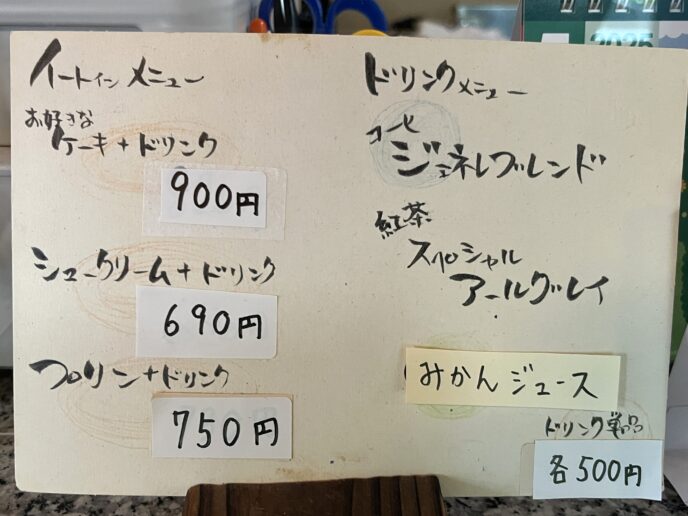 イートインメニュー
お好きな
ケーキ+ドリンク
900円
シュークリーム+ドリンク
690円
プリン+ドリンク
750円
ドリンクメニュー
コーヒー
ジェネレブレンド
紅茶
スペシャル
アールグレイ
みかんジュース
ドリンク単品
各500円
2025